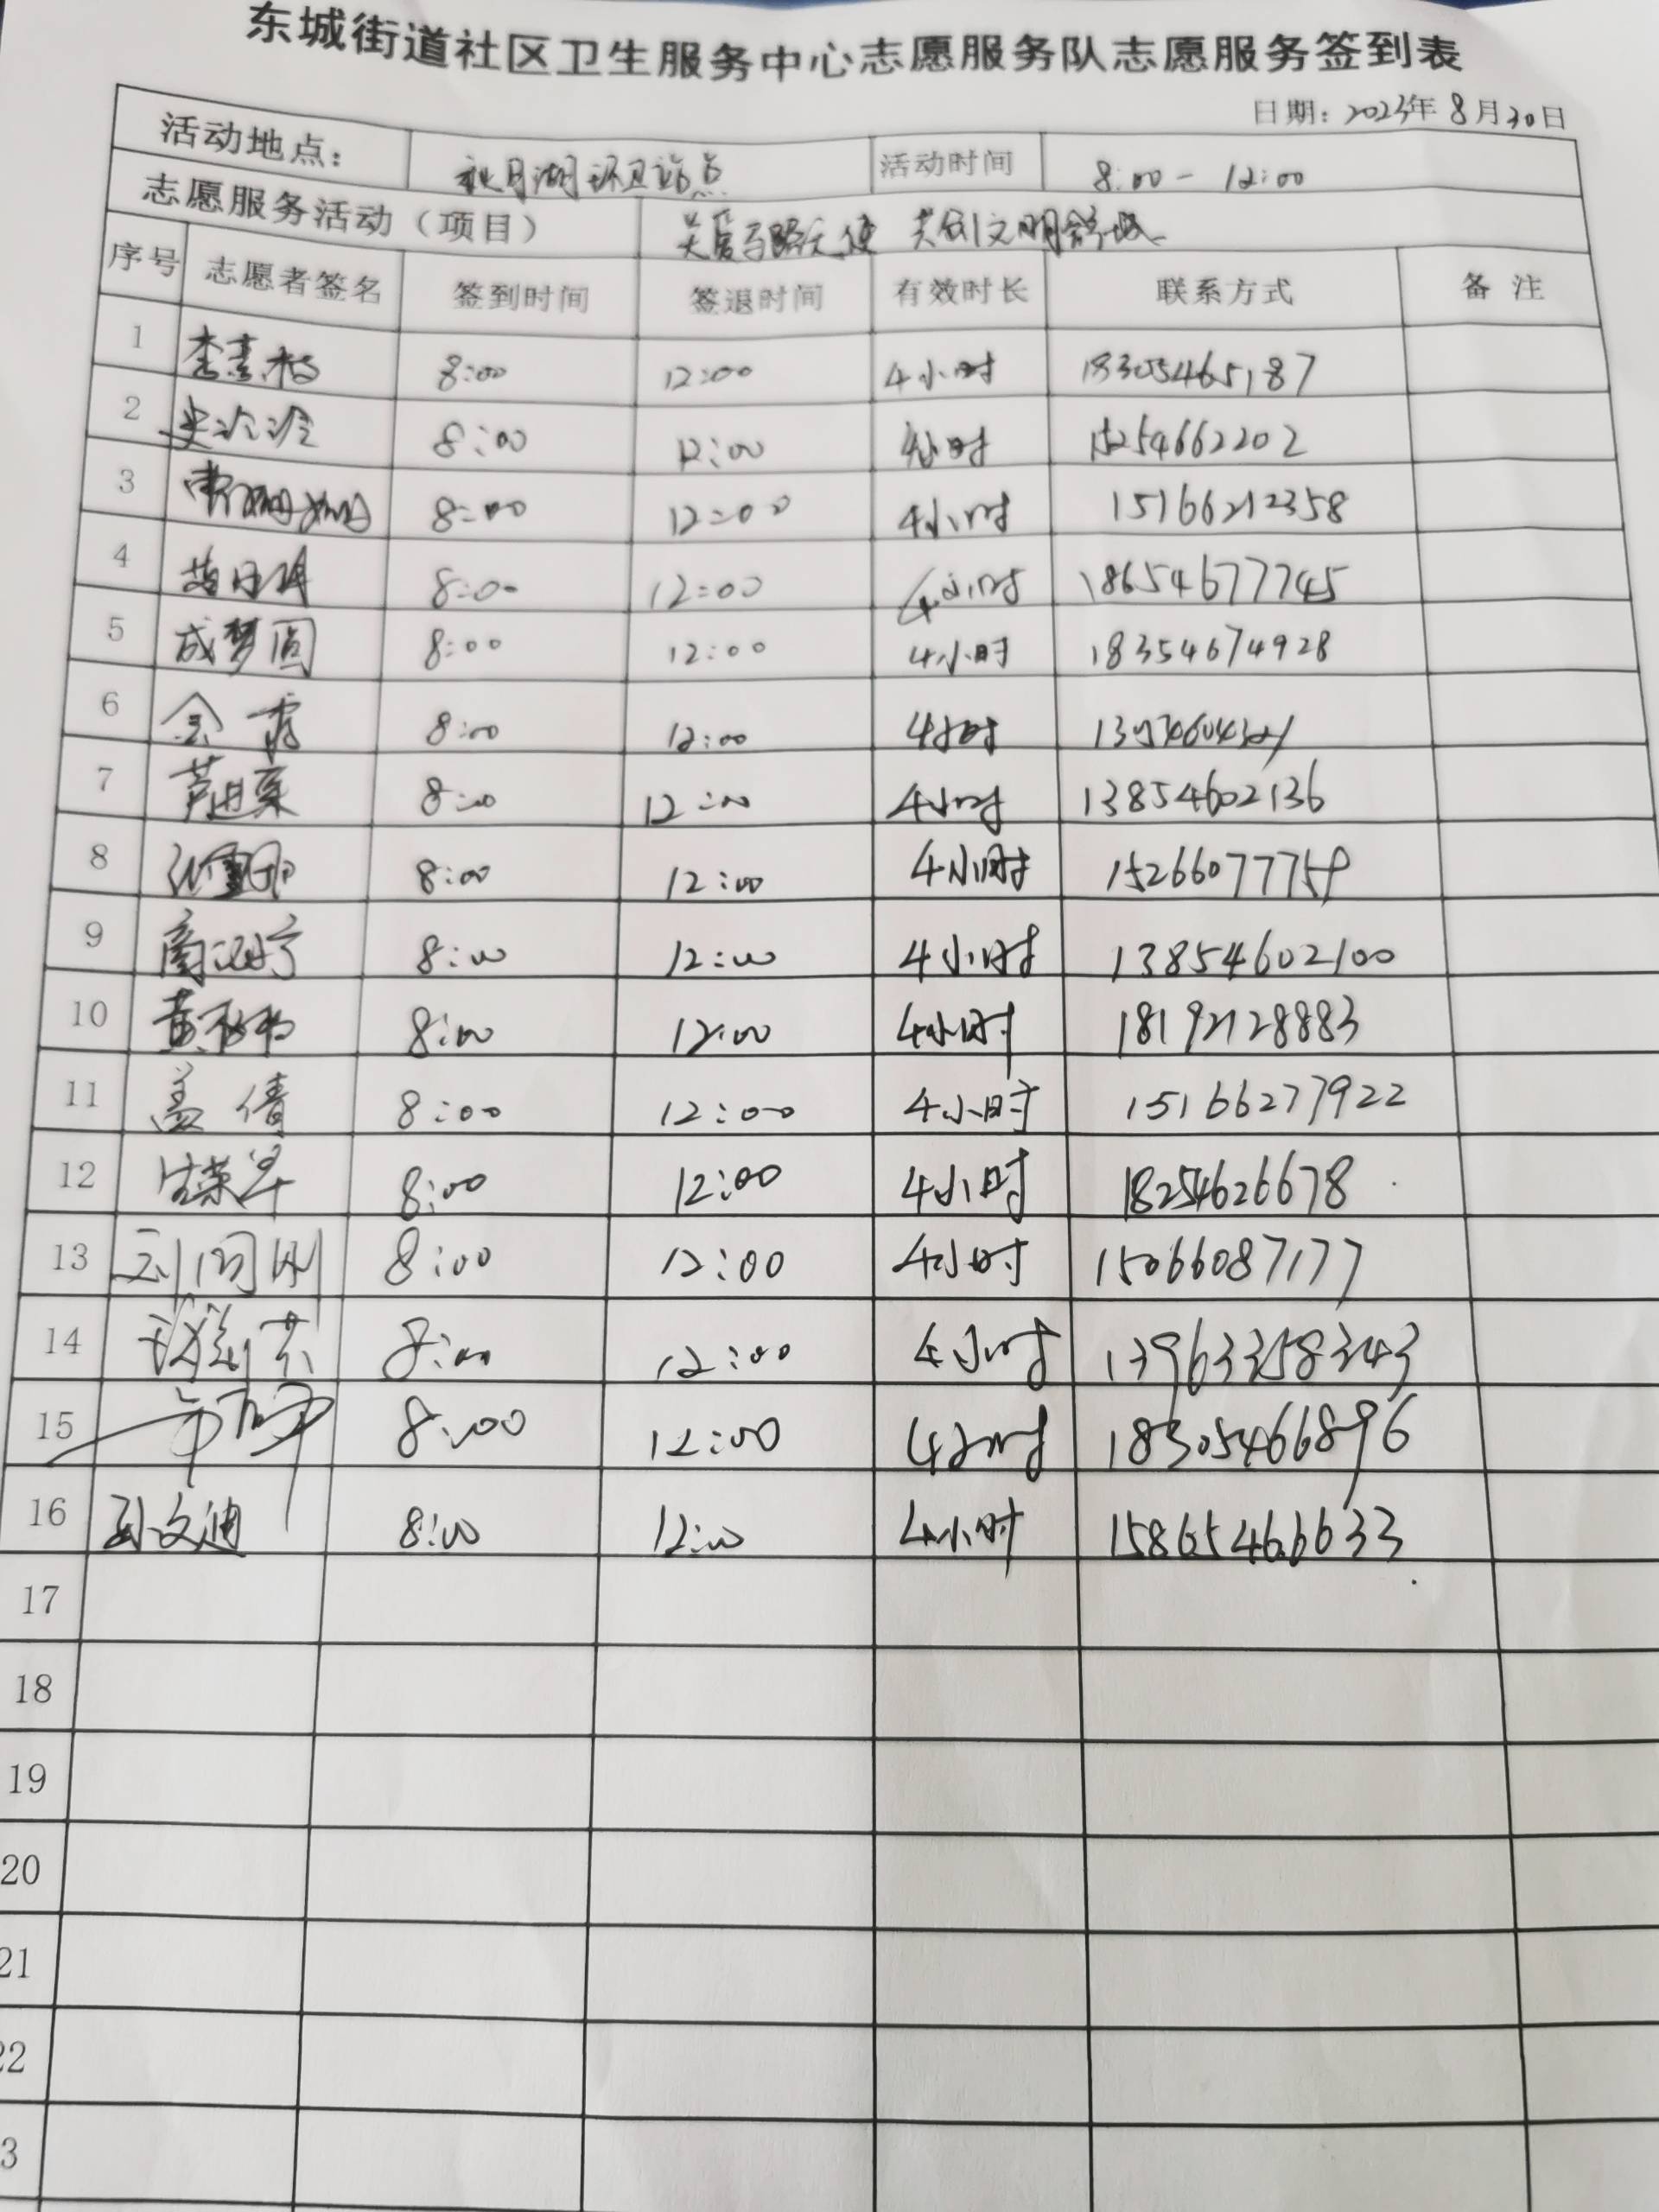 东城街道社区卫生服务中心志愿服务队志愿服务签到表
日期：2023年8月30日
活动地点： 秋月湖环卫站点 活动时间 8:00 - 12:00
志愿服务活动（项目） 关爱马路天使 共创文明
序号 志愿者签名 签到时间 签退时间 有效时长 联系方式 备注
1 8:00 12:00 4小时 18305465187
2 史冷冷 8:00 12:00 4小时 15254662202
3 8:00 12:00 4小时 15166212358
4 8:00 12:00 4小时 18654677745
5 成梦圆 8:00 12:00 4小时 18354674928
6 8:00 12:00 4小时
7 8:00 12:00 4小时 13854602136
8 8:00 12:00 4小时 15266077759
9 8:00 12:00 4小时 13854602100
10 8:00 12:00 4小时 18192128883
11 盖倩 8:00 12:00 4小时 15166277922
12 8:00 12:00 4小时 18254626678
13 8:00 12:00 4小时 15066087177
14 8:00 12:00 4小时 13963358343
15 8:00 12:00 4小时 18305466896
16 孙文迪 8:00 12:00 4小时 15865466633
17
18
19
20
21
22
3